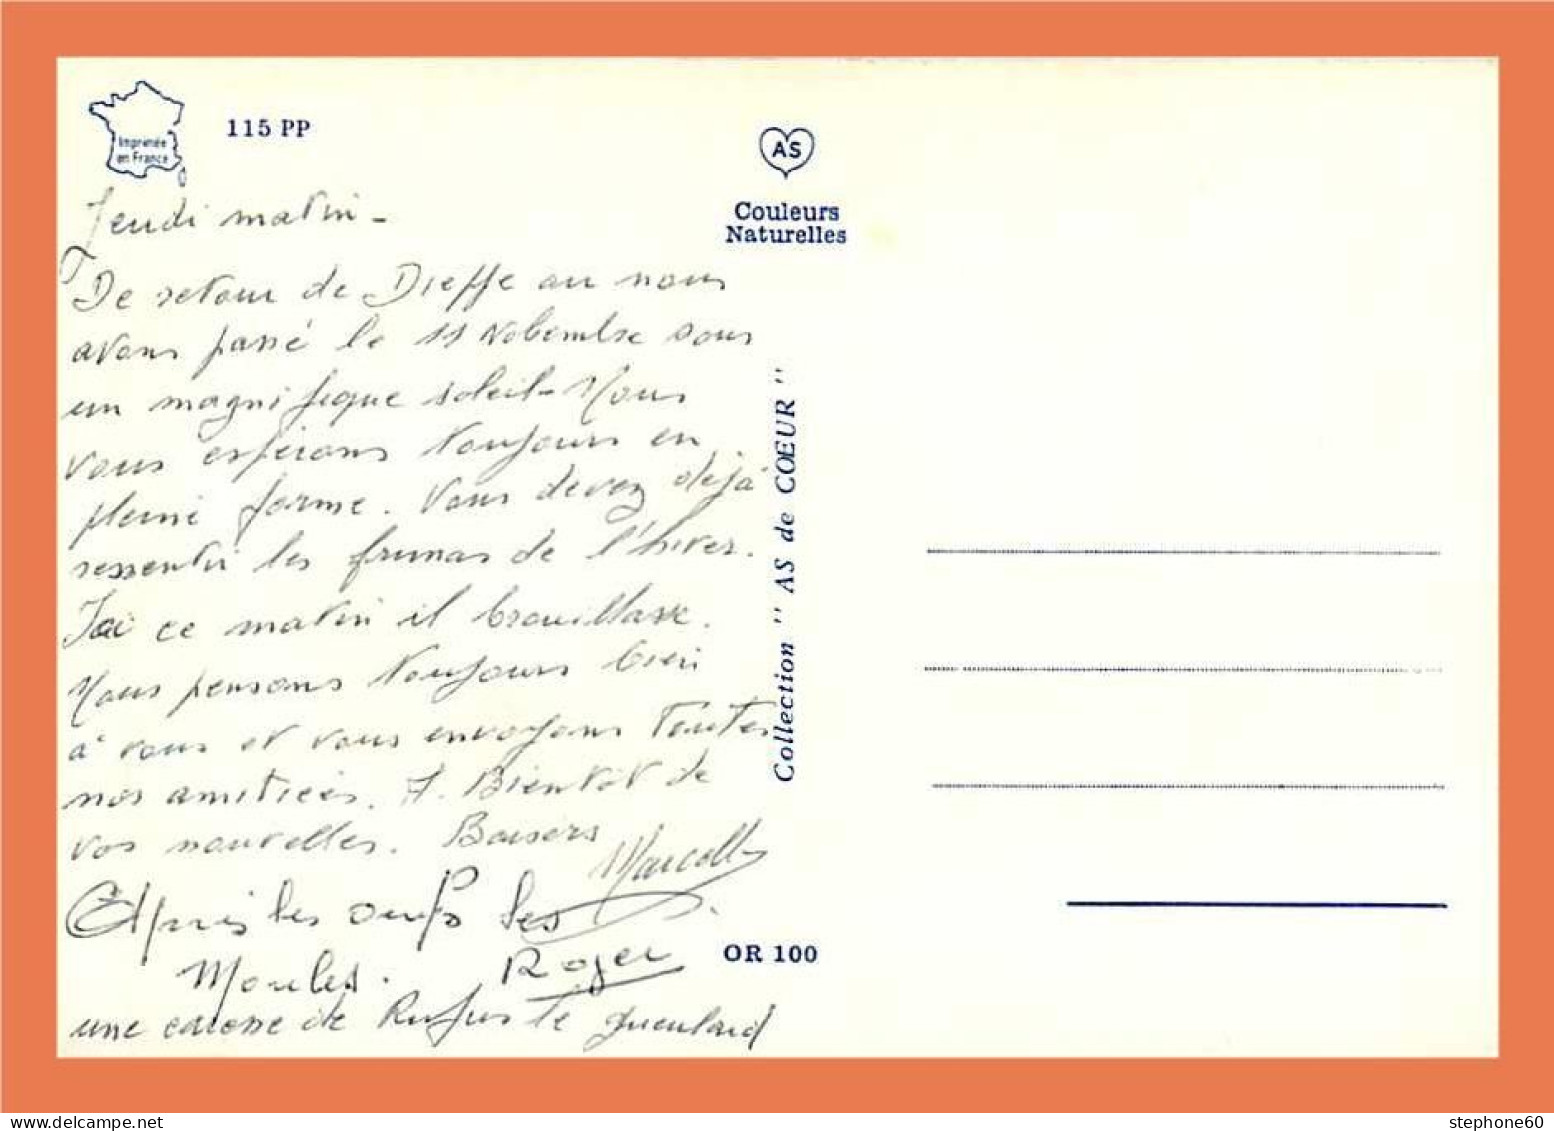 Imprimée
en France
115 PP
AS
Couleurs
Naturelles
Jeudi matin -
De retour de Dieppe ou nous
avons passé le 11 Novembre sous
un magnifique soleil - Nous
vous espérons toujours en
pleine forme. Vous devez déjà
ressentir les frimas de l'hiver.
Ici ce matin il brouillasse.
Nous pensons toujours bien
à vous et vous envoyons toutes
nos amitiées. A Bientôt de
vos nouvelles. Baisers
Marcelle
Après les oeufs les
Moules. Roger
une caresse de Rufus le gueulard
Collection " AS de COEUR "
OR 100
stephone60